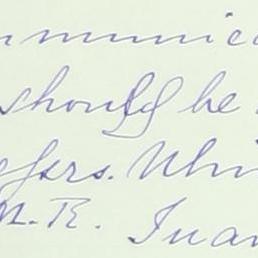 mmunica
should be
fers. Whi
M. R. Juan